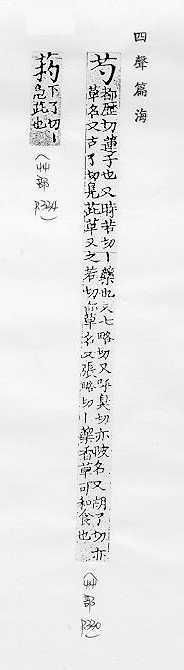 四聲篇海
芍
都歷切蓮子也又時若切丨藥也又七略切又乎臭切亦陂名又胡了切亦
草名又古了切鳧茈草又之若切亦草名又張略切丨藥香草可和食也
（艸部 P330）
葯
下了切丨
鳧茈也
（艸部 P334）